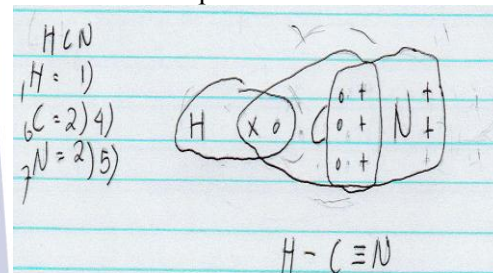 HCN
₁H = 1)
₆C = 2) 4)
₇N = 2) 5)
H x o C o + N +
o + +
o +
H - C ≡ N